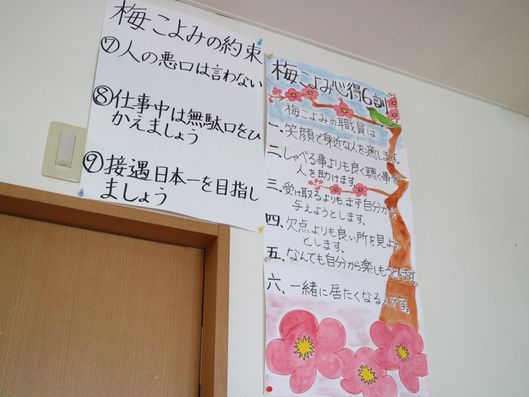 梅こよみの約束
⑦人の悪口は言わない
⑧仕事中は無駄口をひ
かえましょう
⑨接遇日本一を目指し
ましょう
梅こよみ心得6訓
梅こよみの職員は
一、笑顔で身近な人を癒します。
二、しゃべる事よりも良く聴く事で
人を助けます。
三、受け取るよりもまず自分から
与えようとします。
四、欠点よりも良い所を見よう
とします。
五、なんでも自分から楽しもうとします。
六、一緒に居たくなる人です。